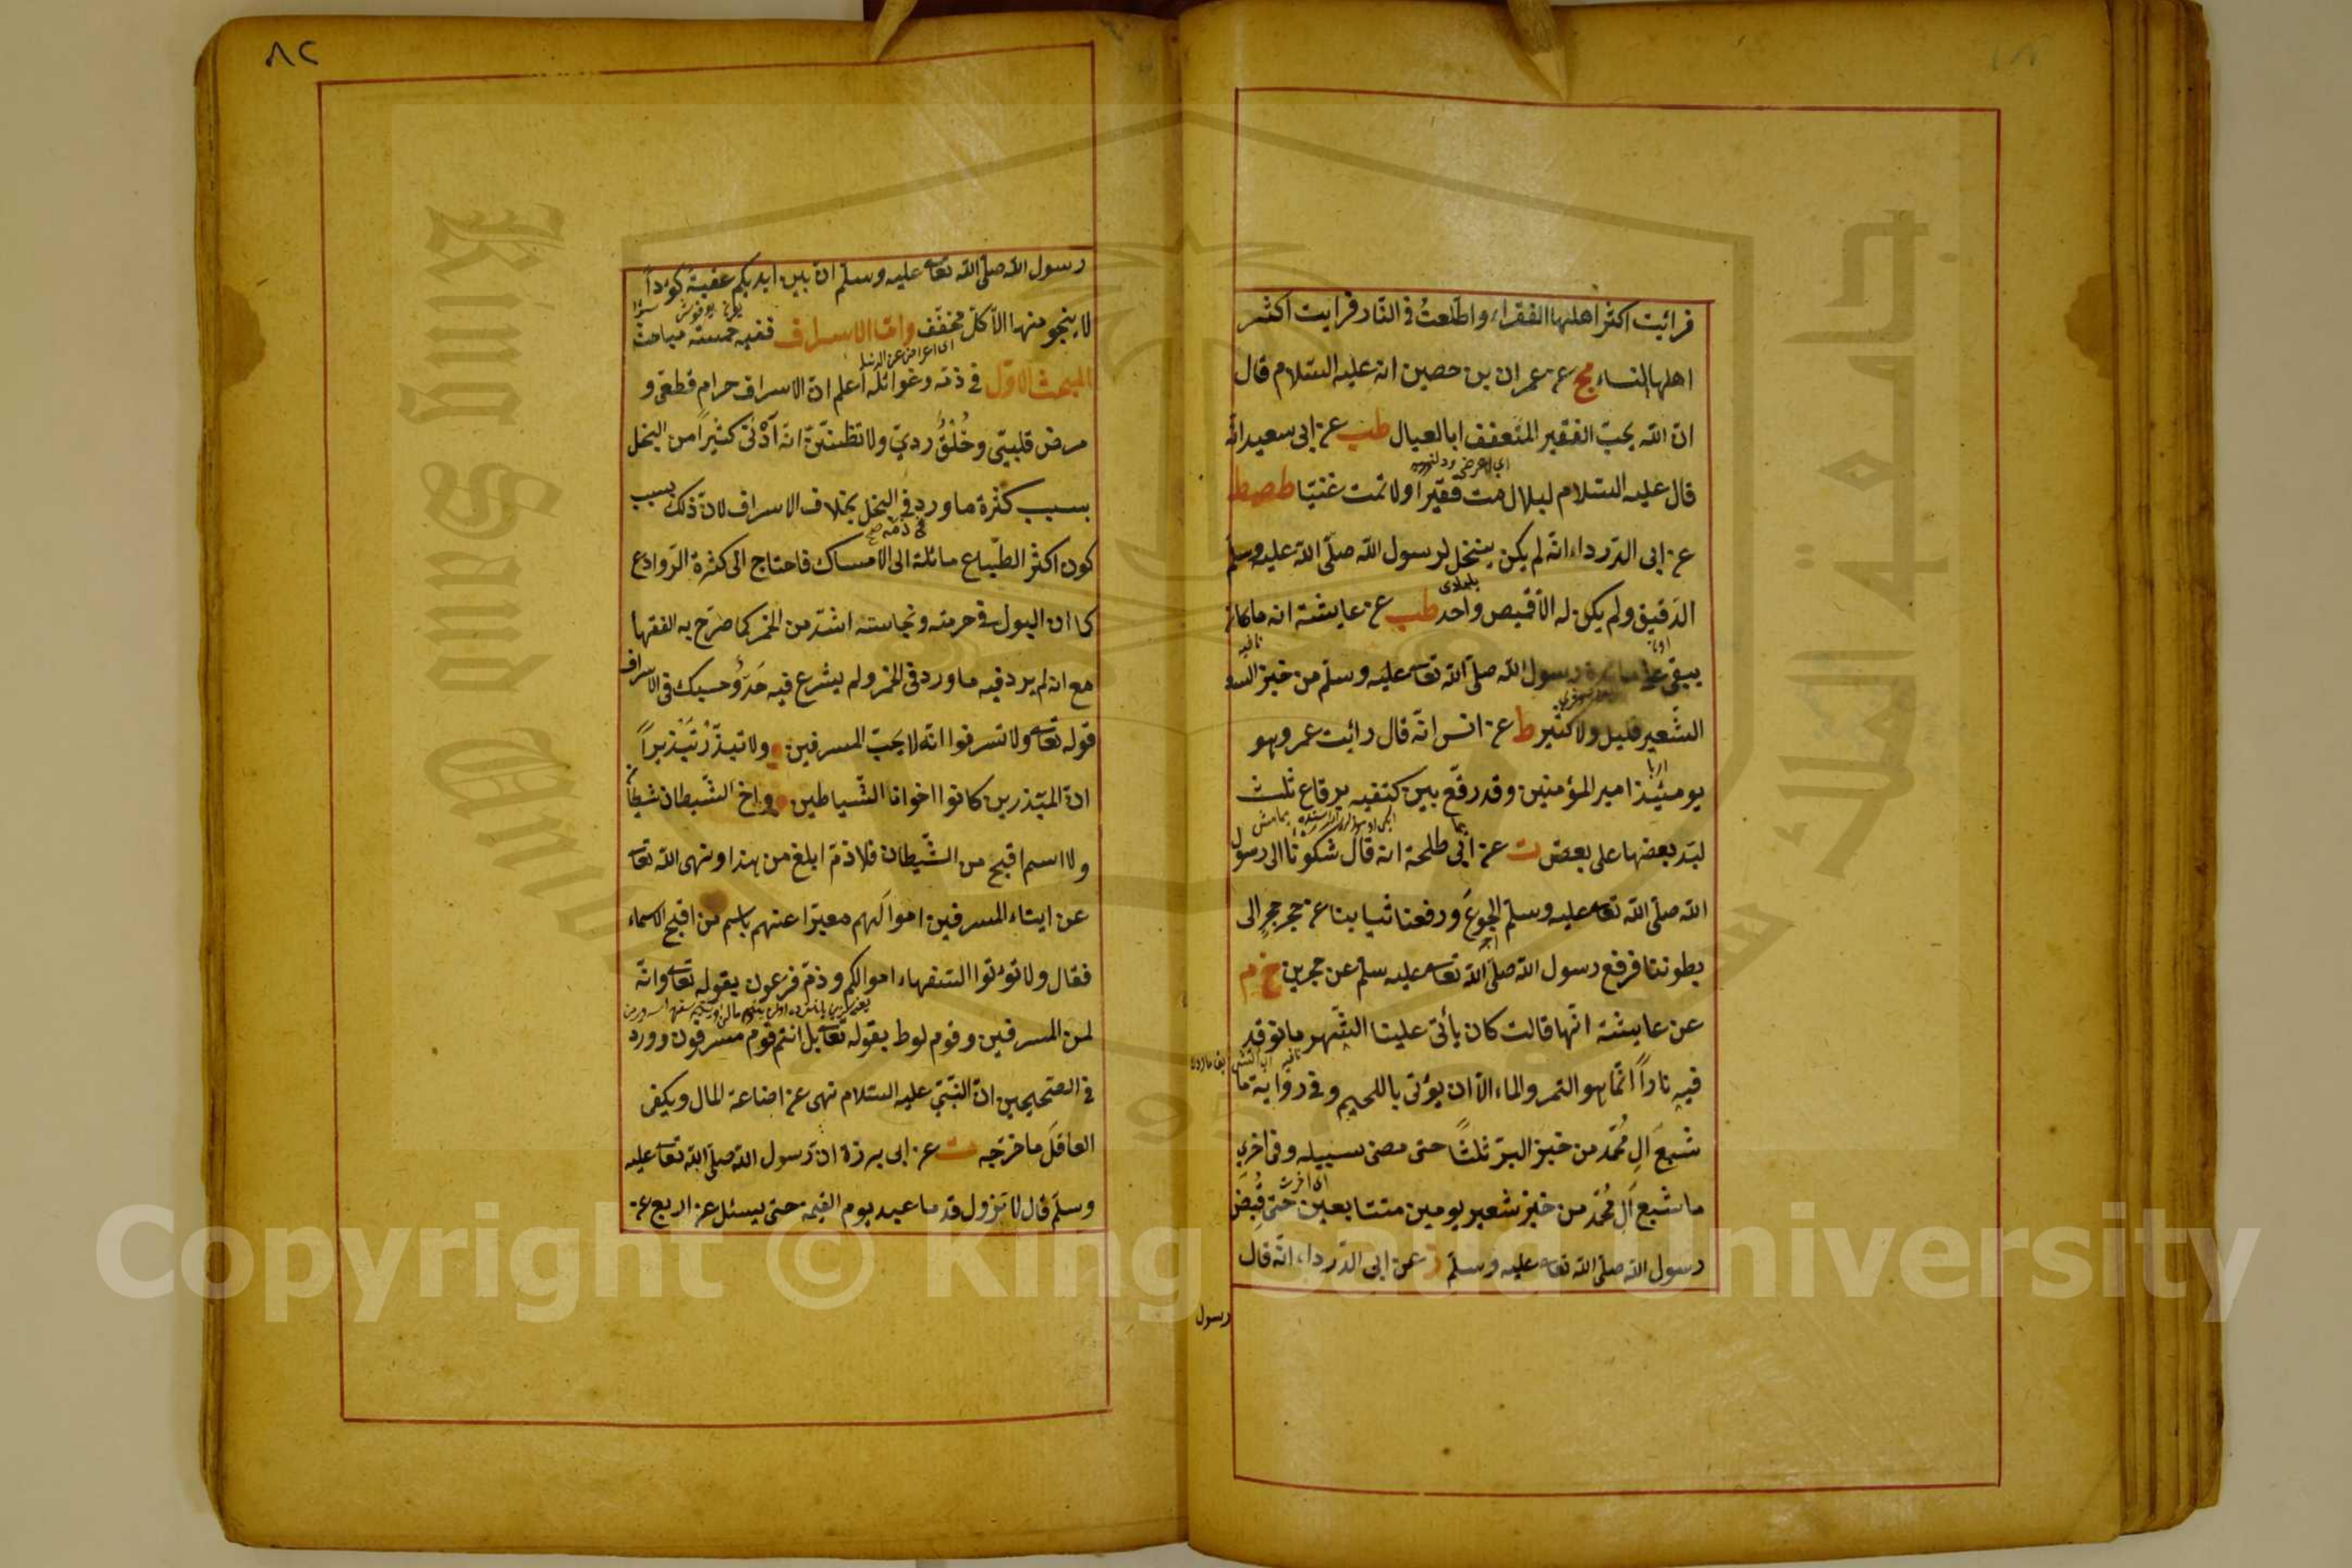 فرائيت اكثر اهلها الفقراء واطلعتُ فى النّار فرايت اكثر
اهلها النساء مج عن عمران بن حصين انه عليه السّلام قال
انّ الله يحبّ الفقير المتعفف ابا العيال طب عن ابى سعيد انّه
قال عليه السّلام لبلال مت فقيراً ولا تمت غنيّا طص طط
عن ابى الدّرداء انّه لم يكن ينخل لرسول الله صلّى الله عليه وسلّم
الدّقيق ولم يكن له الاّ قميص واحد طب عن عايشة انه ما كان
يبقى على مائدة رسول الله صلّى الله تعا عليه وسلّم من خبز
الشّعير قليل ولا كثير ط عن انس انّه قال رائيت عمر وهو
يومئيذ امير المؤمنين وقد رقّع بين كتفيه برقاع ثلث
لبّد بعضها على بعض ت عن ابى طلحة انه قال شكونا الى رسول
الله صلّى الله تعا عليه وسلّم الجوع ورفعنا ثيابنا عن حجر حجرٍ الى
بطوننا فرفع رسول الله صلّى الله تعا عليه سلّم عن حجرين خ م
عن عايشة انّها قالت كان يأتى علينا الشّهر ما نوقد
فيه ناراً انّما هو التمر والماء الاّ ان يؤتى باللحيم وفى رواية ما
شبع آلِ مُحمّد من خبز البرّ ثلثاً حتى مضى سبيله وفى اخرى
ما شبع آلِ مُحمّد من خبز شعير يومين متتابعين حتّى قُبِضَ
رسول الله صلّى الله تعا عليه وسلّم ز عن ابى الدّرداء انّه قال
رسول
٨٢
رسول الله صلّى الله تعا عليه وسلّم انّ بين ايديكم عقبةً كؤداً
لا ينجو منها الاّ كلّ مخفّف وامّا الاسراف ففيه خمسة مباحث
المبحث الاوّل فى ذمّه وغوائله اعلم انّ الاسراف حرام قطعى و
مرض قلبىّ وخُلُقٌ ردىّ ولا تظننّ انّه ادْنى كثيراً من البخل
بسبب كثرة ما ورد فى البخل بخلاف الاسراف لانّ ذلك بسبب
كون اكثر الطّباع مائلة الى الامساك فاحتاج الى كثرة الرّوادع
كما ان البول فى حرمته ونجاسته اشدّ من الخمر كما صرّح به الفقها
مع انه لم يرد فيه ما ورد فى الخمر ولم يشرع فيه حَدٌّ وحسبك فى الاسراف
قوله تعا ولا تسرفوا انّه لا يحبّ المسرفين ولا تبذّر تَبْذيراً
انّ المبذرين كانوا اخوانا الشّياطين واخ الشّيطان شيطان
ولا اسم اقبح من الشّيطان فلا ذمّ ابلغ من هذا ونهى الله تعا
عن ايتاء المسرفين اموالهم معبّرا عنهم باسم من اقبح الاسماء
فقال ولا تؤتوا السّفهاء اموالكم وذمّ فرعون بقوله تعا وانّه
لمن المسرفين وقوم لوط بقوله تعا بل انتم قوم مسرفون وورد
فى الصّحيحين انّ النّبىّ عليه السّلام نهى عن اضاعة المال ويكفى
العاقل ما خرّجه ت عن ابى برزة انّ رسول الله صلّى الله تعا عليه
وسلّم قال لا تزول قد ما عبد يوم القيمة حتى يسئل عن اربع عن
Copyright © King Saud University
King Saud University
جامعة الملك سعود